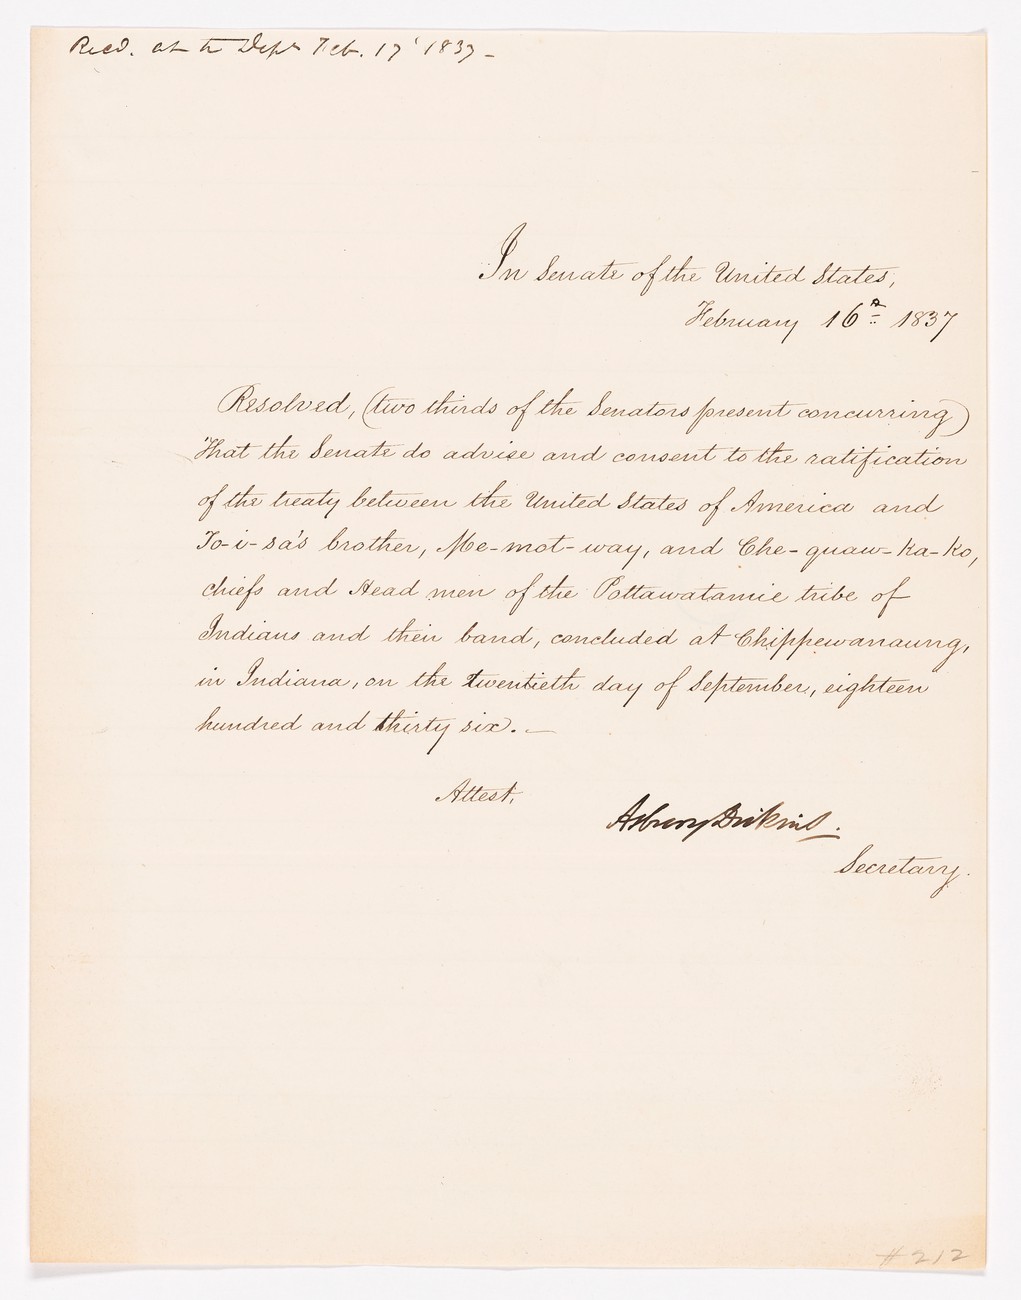 Recd. at the Dept Feb. 17' 1837 -
In Senate of the United States,
February 16th 1837
Resolved, (two thirds of the Senators present concurring)
That the Senate do advise and consent to the ratification
of the treaty between the United States of America and
To-i-sa's brother, Me-mot-way, and Che-quaw-ka-ko,
chiefs and Head men of the Pottawatamie tribe of
Indians and their band, concluded at Chippewanaung,
in Indiana, on the twentieth day of September, eighteen
hundred and thirty six. -
Attest,
Asbury Dickins.
Secretary.
#212